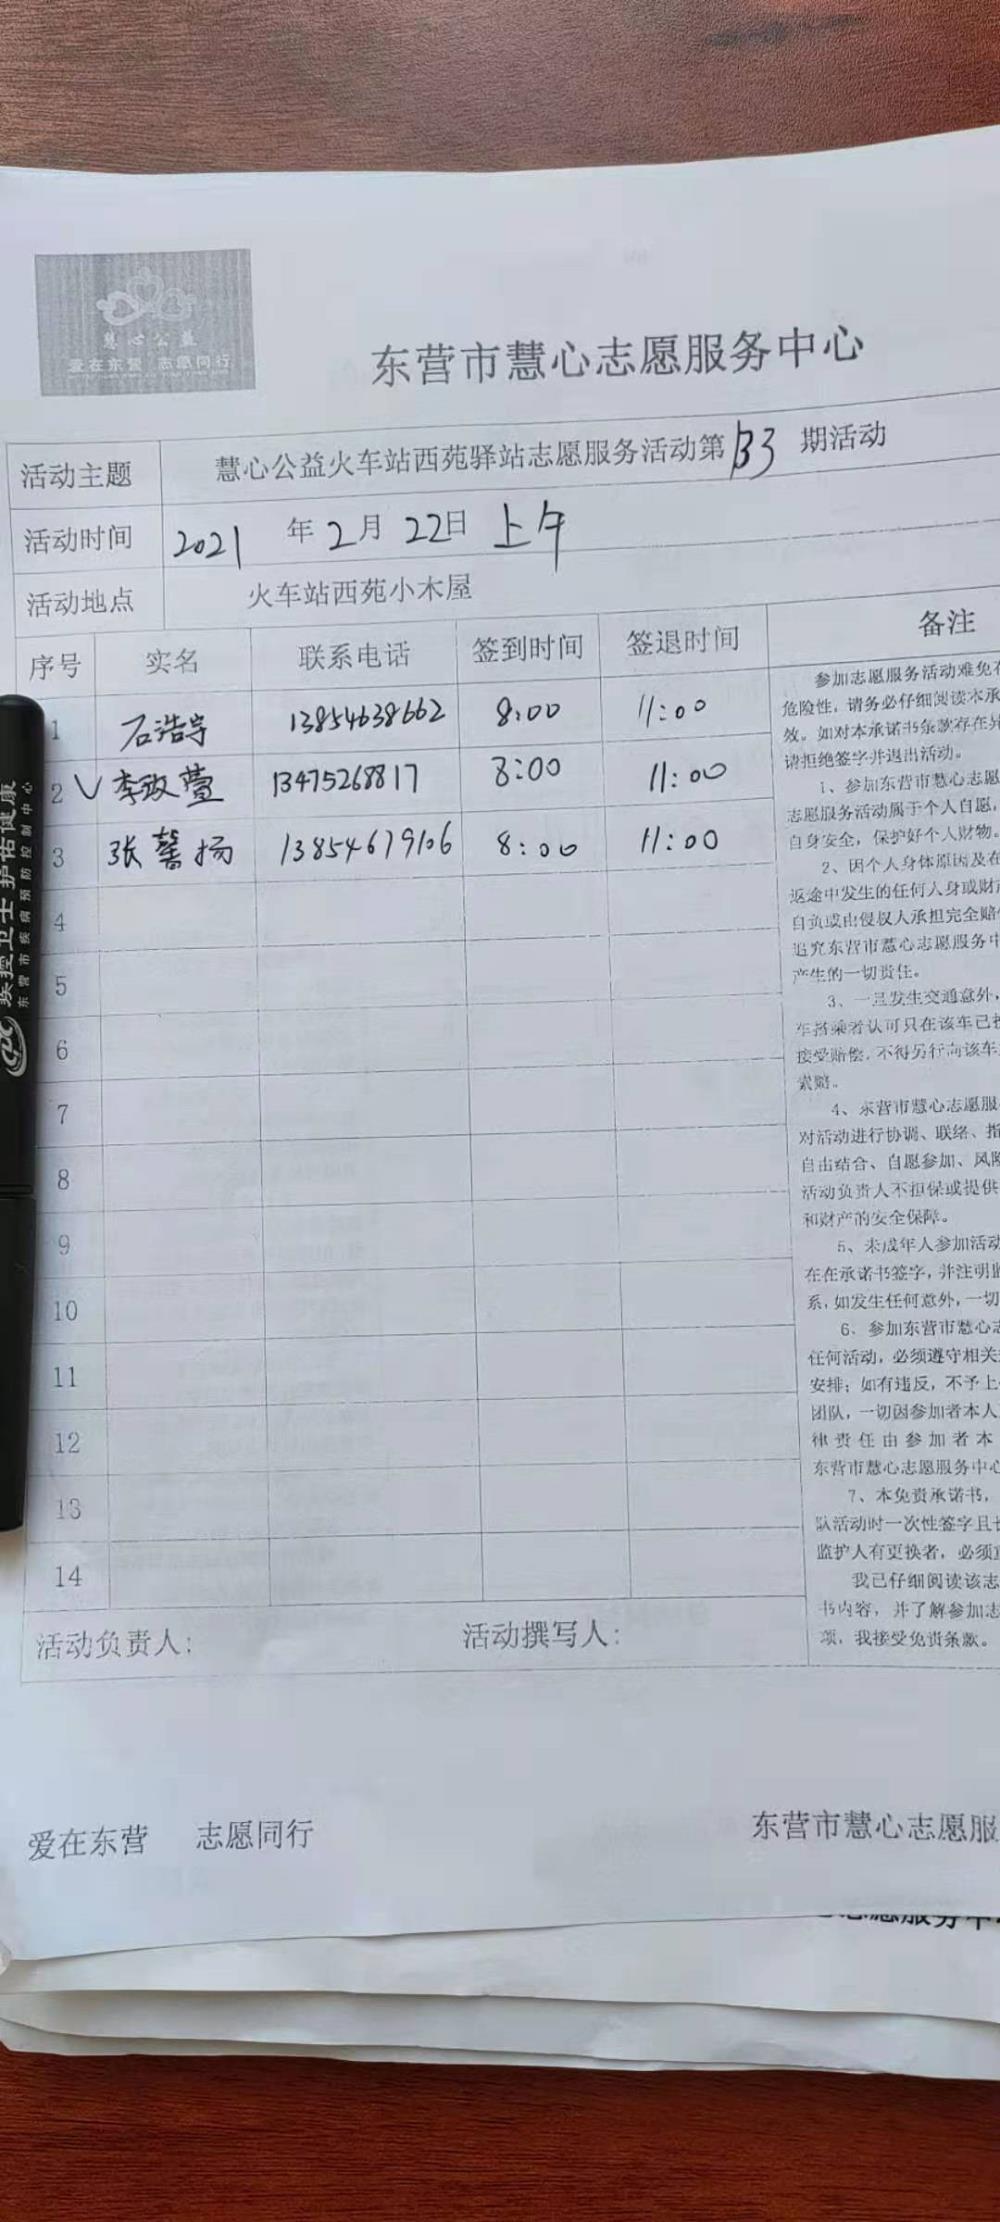 慧心公益
爱在东营 志愿同行
东营市慧心志愿服务中心
活动主题 慧心公益火车站西苑驿站志愿服务活动第133期活动
活动时间 2021年2月22日 上午
活动地点 火车站西苑小木屋
序号 实名 联系电话 签到时间 签退时间 备注
1 石浩宇 13854638662 8:00 11:00
2 √ 李政萱 13475268817 8:00 11:00
3 张馨扬 13854679106 8:00 11:00
4
5
6
7
8
9
10
11
12
13
14
参加志愿服务活动难免存
危险性,请务必仔细阅读本承
效。如对本承诺书条款存在异
请拒绝签字并退出活动。
1、参加东营市慧心志愿
志愿服务活动属于个人自愿,
自身安全,保护好个人财物。
2、因个人身体原因及在
返途中发生的任何人身或财产
自负或由侵权人承担完全赔偿
追究东营市慧心志愿服务中
产生的一切责任。
3、一旦发生交通意外,
车搭乘者认可只在该车已投
接受赔偿,不得另行向该车
索赔。
4、东营市慧心志愿服
对活动进行协调、联络、指
自由结合、自愿参加、风险
活动负责人不担保或提供
和财产的安全保障。
5、未成年人参加活动
在在承诺书签字,并注明监
系,如发生任何意外,一切
6、参加东营市慧心志
任何活动,必须遵守相关
安排;如有违反,不予上
团队,一切因参加者本人
律责任由参加者本
东营市慧心志愿服务中心
7、本免责承诺书,
队活动时一次性签字且长
监护人有更换者,必须重
我已仔细阅读该志
书内容,并了解参加志
项,我接受免责条款。
活动负责人: 活动撰写人:
爱在东营 志愿同行 东营市慧心志愿服
志愿服务中
疾控卫士 护佑健康
东营市疾病预防控制中心
CDC